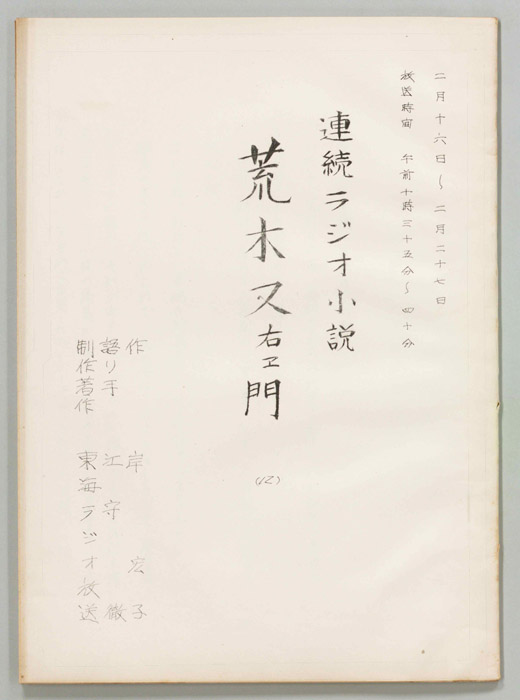 二月十六日～二月二十七日
放送時間 午前十時三十五分～四十分
連続ラジオ小説
荒木又右ヱ門
(12)
作 岸宏子
語り手 江守徹
制作著作 東海ラジオ放送